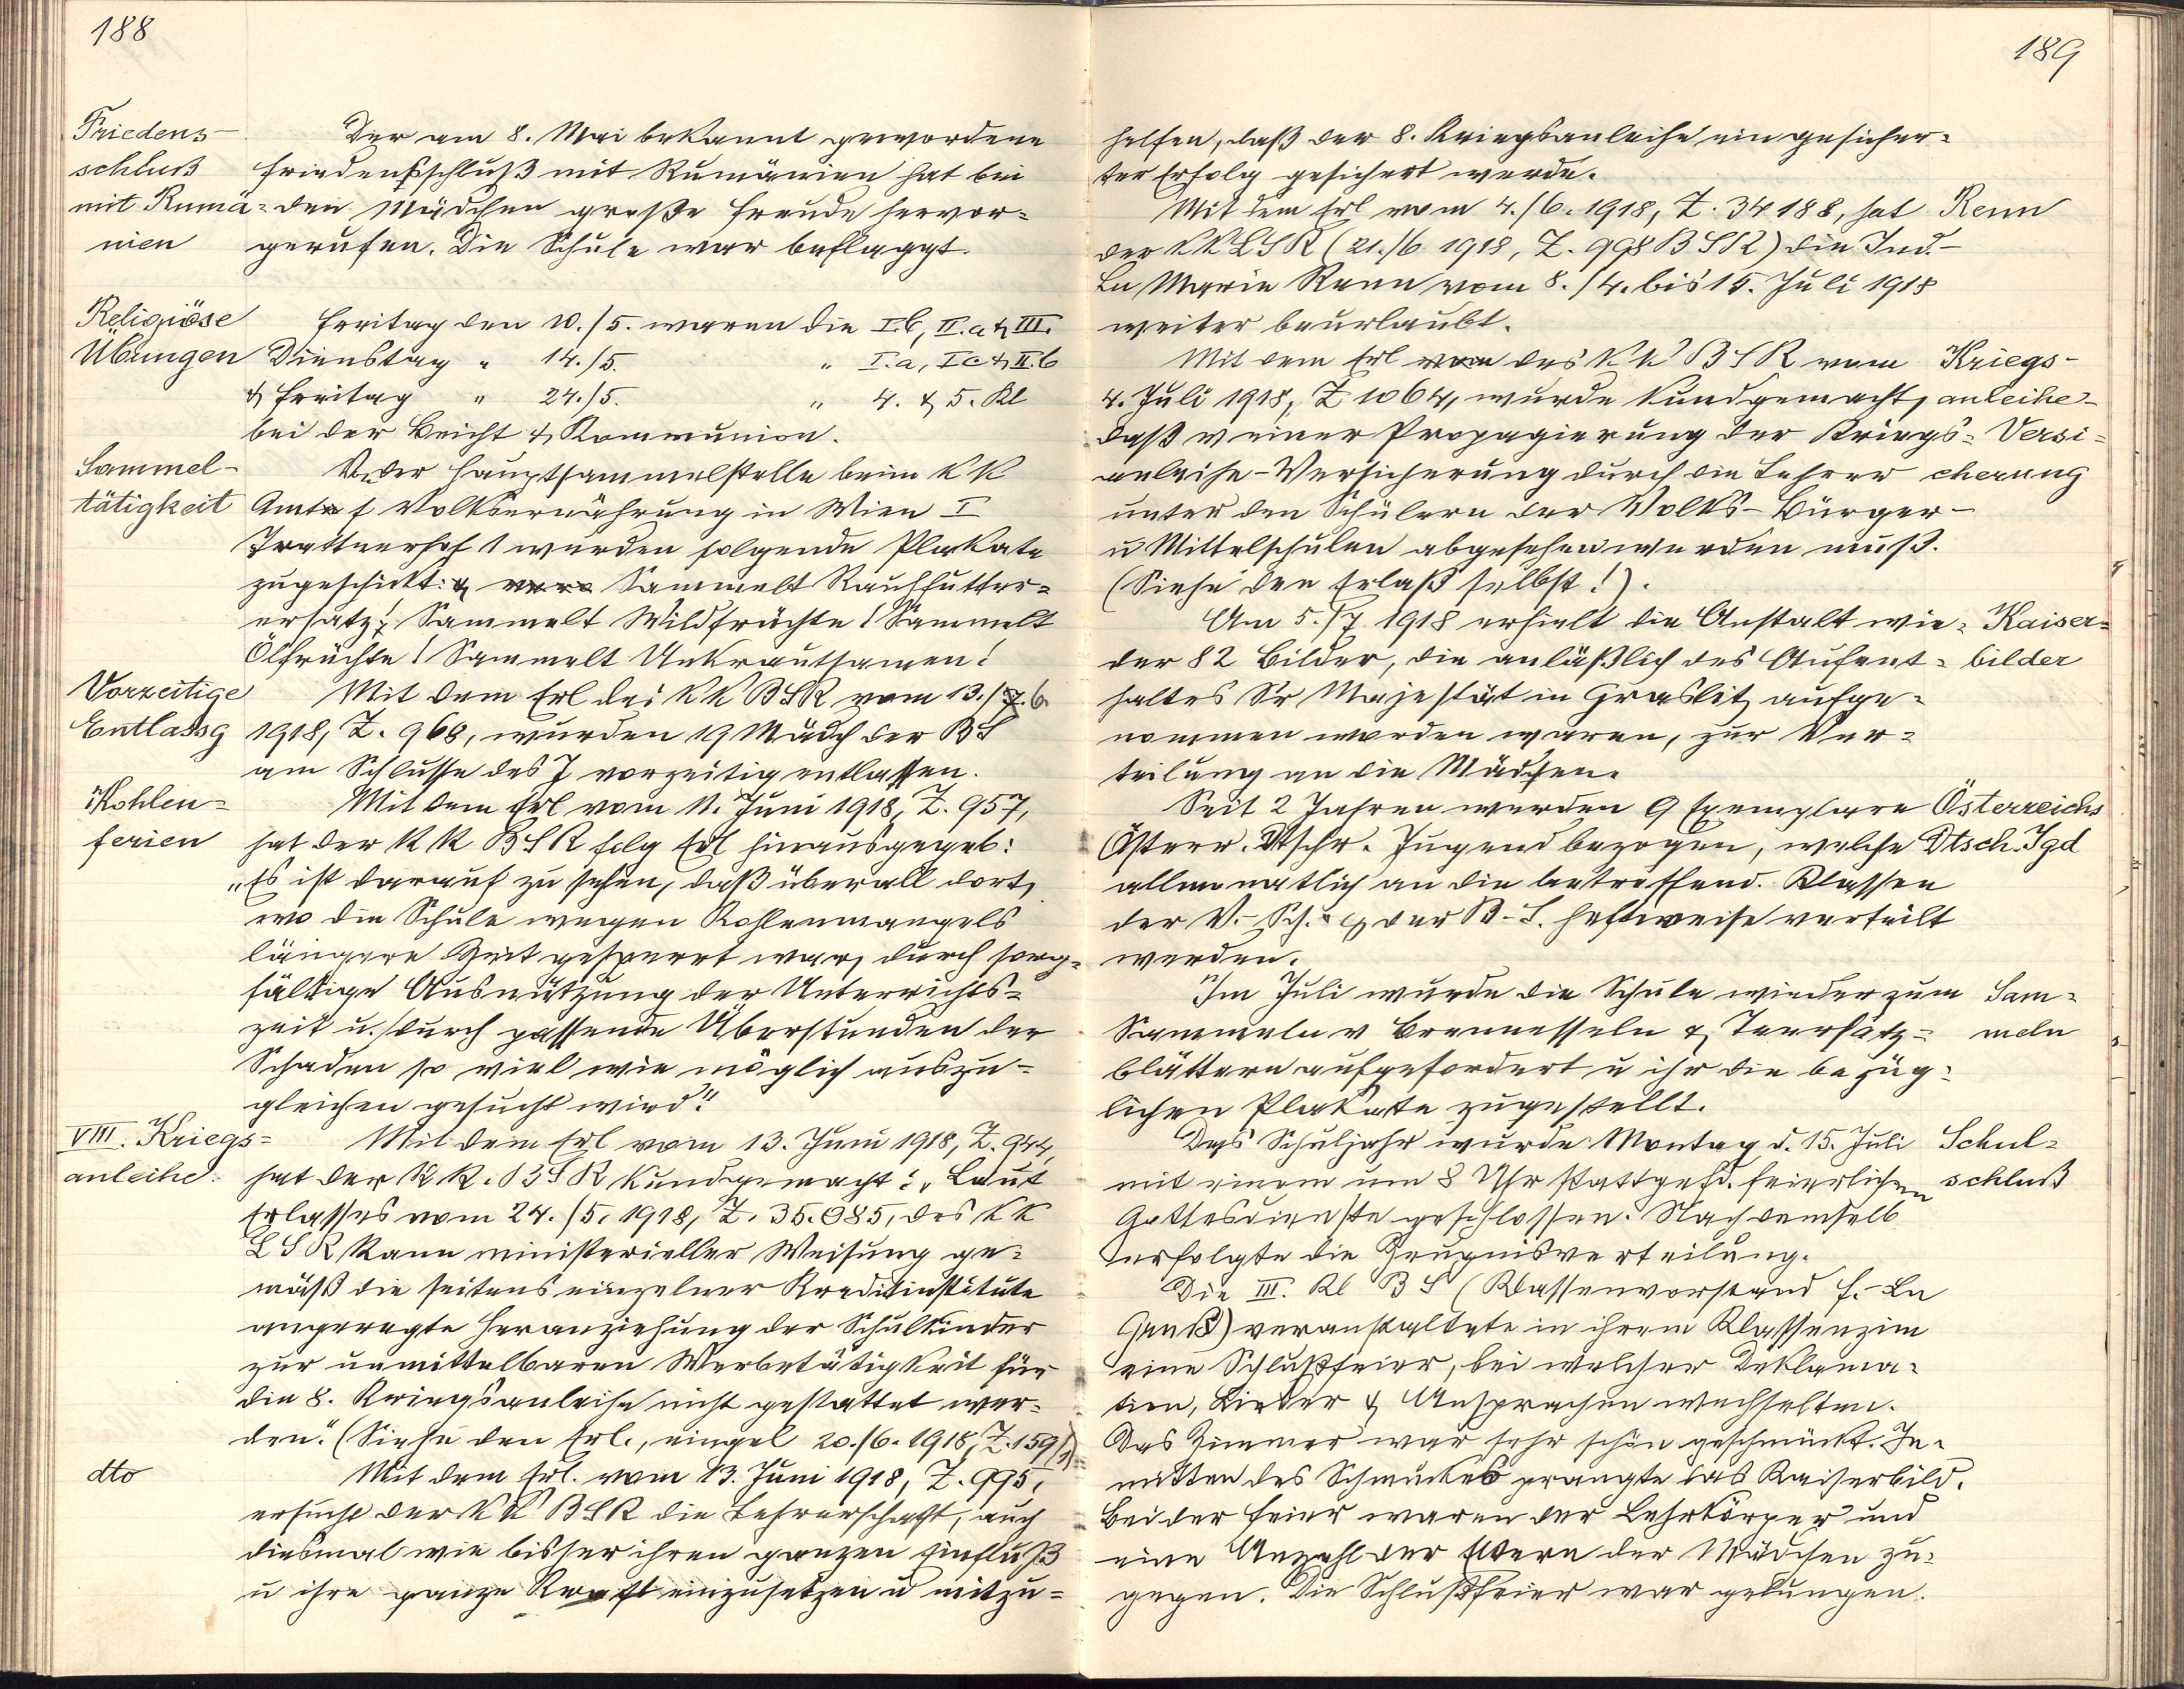 188
Friedens-
schluß
mit Rumä=
nien
Der am 8. Mai bekannt gewordene
Friedensschluß mit Rumänien hat bei
den Mädchen große Freude hervor=
gerufen. Die Schule war beflaggt.
Religiöse
Übungen
Freitag den 10./5. waren die I.b, II.a & III.
Dienstag " 14./5. " I.a, I c & II.b
& Freitag " 24./5. " 4. & 5. Kl
bei der Beicht & Kommunion.
Sammel-
tätigkeit
V. der Hauptsammelstelle beim k k
Amte f Volksernährung in Wien I
Trattnerhof 1 wurden folgende Plakate
zugeschickt: Sammelt Rauhfutter=
ersatz! Sammelt Wildfrüchte! Sammelt
Ölfrüchte! Sammelt Unkrautsamen!
Vorzeitige
Entlassg
Mit dem Erl des k k BSR vom 13./6.
1918, Z. 968, wurden 19 Mädch der BS
am Schlusse des J vorzeitig entlassen.
Kohlen=
ferien
Mit dem Erl vom 11. Juni 1918, Z. 957,
hat der k k BSR folg Erl hinausgegeb:
"Es ist darauf zu sehen, daß überall dort,
wo die Schule wegen Kohlenmangels
längere Zeit gesperrt war, durch sorg=
fältige Ausnützung der Unterrichts=
zeit u. durch passende Überstunden der
Schaden so viel wie möglich auszu=
gleichen gesucht wird."
VIII. Kriegs=
anleihe.
Mit dem Erl vom 13. Juni 1918, Z. 944,
hat der k k. BSR kundgemacht: "Laut
Erlasses vom 24./5. 1918, Z. 35.085, des k k
LSR kann ministerieller Weisung ge=
mäß die seitens einzelner Kreditinstitute
angeregte Heranziehung der Schulkinder
zur unmittelbaren Werbetätigkeit für
die 8. Kriegsanleihe nicht gestattet wer=
den." (Siehe den Erl., eingel 20./6. 1918, Z. 159/)
dto
Mit dem Erl. vom 13. Juni 1918, Z. 995,
ersucht der k k BSR die Lehrerschaft, auch
diesmal wie bisher ihren ganzen Einfluß
u ihre ganze Kraft einzusetzen u mitzu=
189
helfen, daß der 8. Kriegsanleihe ein gesicher=
ter Erfolg gesichert werde.
Mit dem Erl vom 4./6. 1918, Z. 34188, hat
der k k LSR (21./6 1918, Z. 998 BSR) die Ind.-
Ln Marie Renn vom 8./4. bis 15. Juli 1918
weiter beurlaubt.
Renn
Mit dem Erl des k k BSR vom
4. Juli 1918, Z 1064, wurde kundgemacht,
daß v einer Propagierung der Kriegs=
anleihe-Versicherung durch die Lehrer
unter den Schülern der Volks- Bürger-
u Mittelschulen abgesehen werden muß.
(Siehe den Erlaß selbst!).
Kriegs-
anleihe-
Versi=
cherung
Am 5./7 1918 erhielt die Anstalt wie=
der 82 Bilder, die anläßlich des Aufent=
haltes Sr Majestät in Graslitz aufge=
nommen worden waren, zur Ver=
teilung an die Mädchen.
Kaiser=
bilder
Seit 2 Jahren werden 9 Exemplare
Österr. Dtscher. Jugend bezogen, welche
allmonatlich an die betreffend. Klassen
der V.-Sch. & der B-S. heftweise verteilt
werden.
Österreichs
Dtsch. Jgd
Im Juli wurde die Schule wieder zum
Sammeln v Brennesseln & Teersatz=
blättern aufgefordert u ihr die bezüg=
lichen Plakate zugestellt.
Sam=
meln
Das Schuljahr wurde Montag d. 15. Juli
mit einem um 8 Uhr stattgefd. feierlichen
Gottesdienste geschlossen. Nach demselb
erfolgte die Zeugnisverteilung.
Schul=
schluß
Die III. Kl BS (Klassenvorstand f.-Ln
) veranstaltete in ihrem Klassenzim
eine Schlußfeier, bei welcher Deklama=
tion, Lieder & Ansprachen wechselten.
Das Zimmer war sehr schön geschmückt. In=
mitten des Schmuckes prangte das Kaiserbild.
Bei der Feier waren der Lehrkörper und
eine Anzahl der Eltern der Mädchen zu=
gegen. Die Schlußfeier war gelungen.